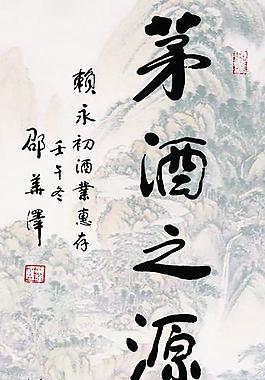 茅酒之源
赖永初酒業惠存
壬午冬
邵華澤